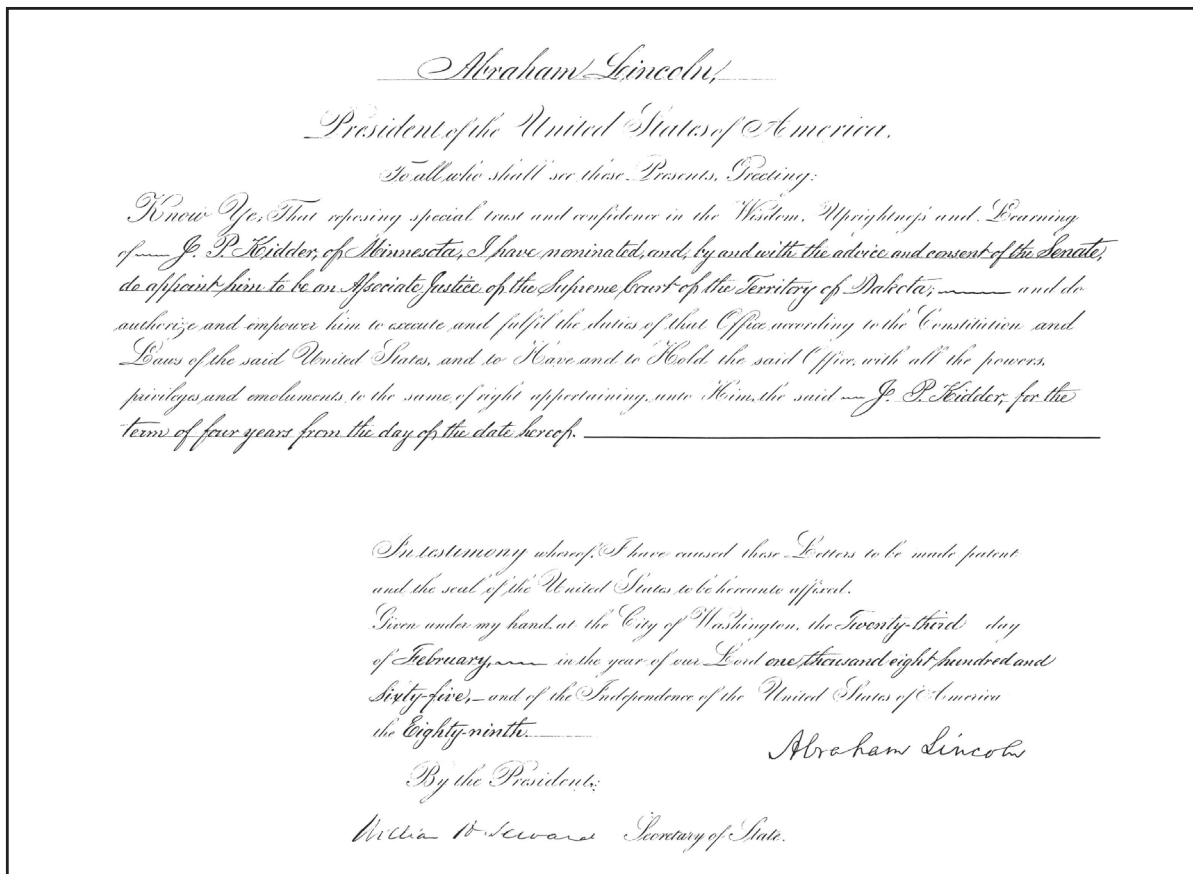 Abraham Lincoln,
President of the United States of America.
To all who shall see these Presents, Greeting:
Know Ye, That reposing special trust and confidence in the Wisdom, Uprightness and Learning
of J. P. Kidder, of Minnesota, I have nominated, and, by and with the advice and consent of the Senate,
do appoint him to be an Associate Justice of the Supreme Court of the Territory of Dakota; and do
authorize and empower him to execute and fulfil the duties of that Office according to the Constitution and
Laws of the said United States, and to Have and to Hold the said Office, with all the powers,
privileges and emoluments to the same of right appertaining, unto Him, the said J. P. Kidder, for the
term of four years from the day of the date hereof.
In testimony whereof, I have caused these Letters to be made patent
and the seal of the United States to be hereunto affixed.
Given under my hand, at the City of Washington, the Twenty-third day
of February, in the year of our Lord one thousand eight hundred and
sixty-five, and of the Independence of the United States of America
the Eighty-ninth.
Abraham Lincoln
By the President:
William H. Seward Secretary of State.